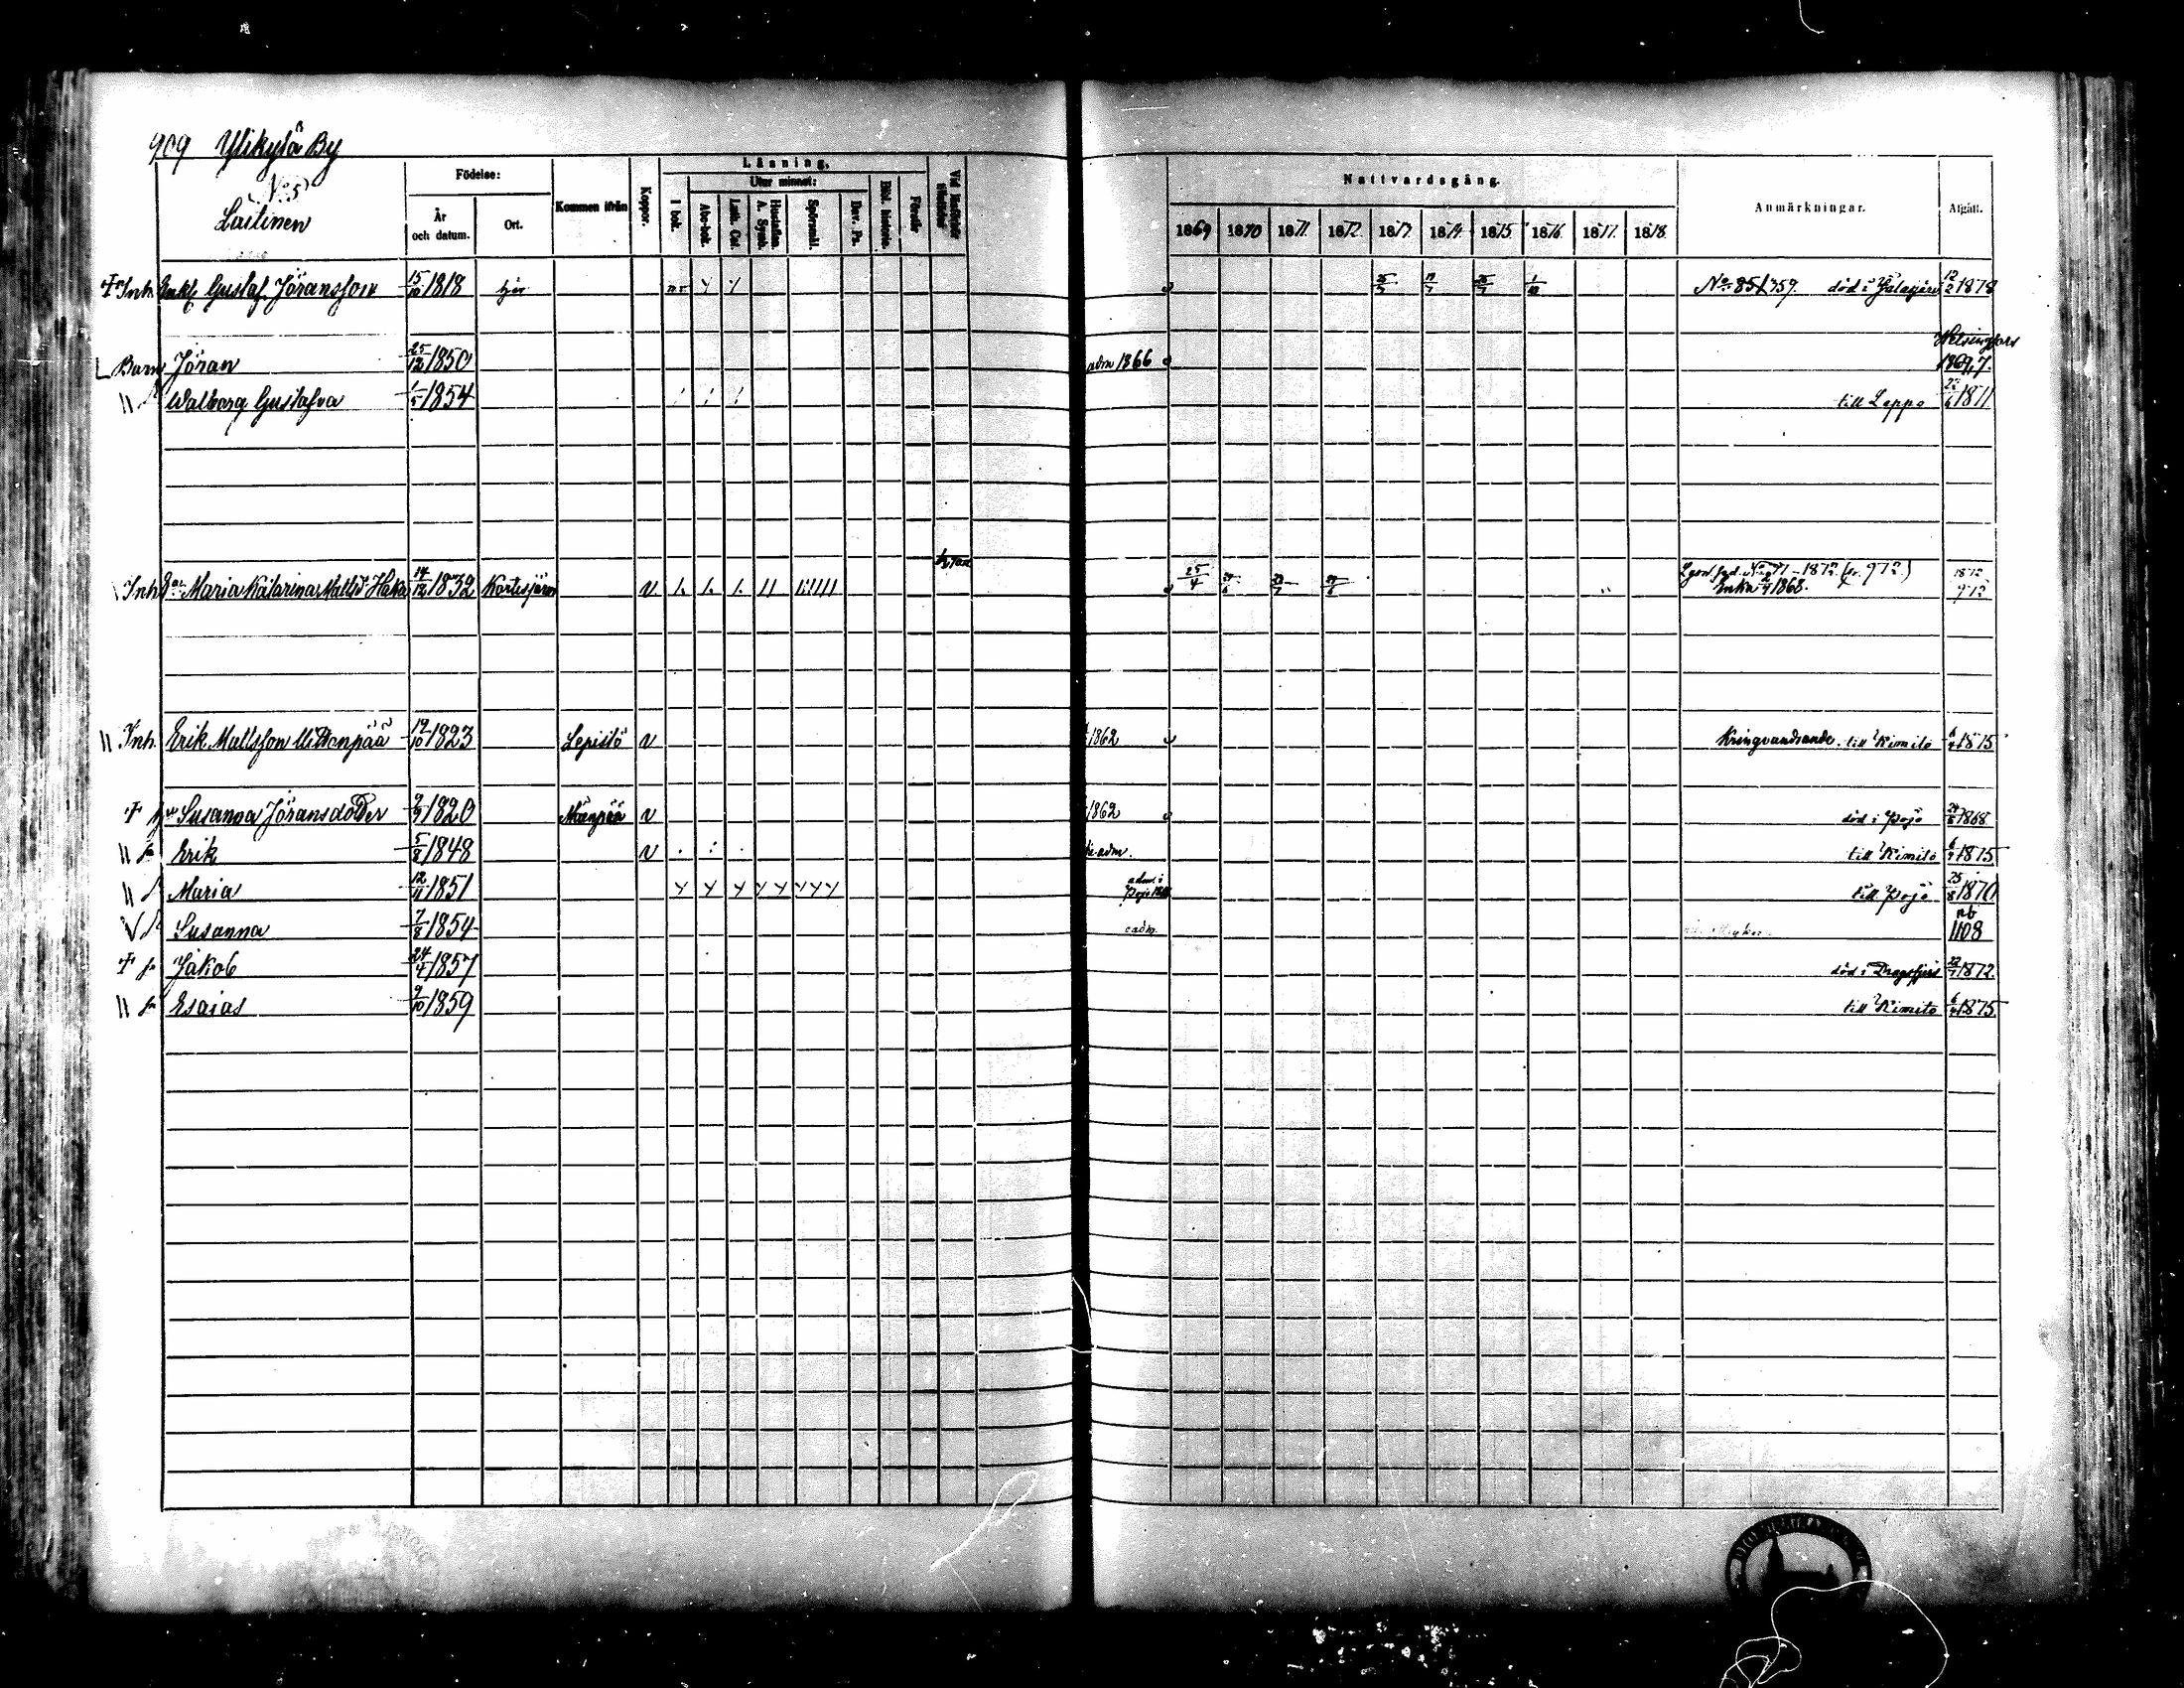 909 Ylikylä By
No 5
Lailinen
Födelse:
År och datum.
Ort.
Kommen ifrån
Koppor.
Läsning.
I bok.
Utur minnet:
Abc-bok.
Luth. Cat.
Hustaflan. A. Symb.
Spörsmål.
Dav. Ps.
Bibl. historie.
Förstår
Nattvardsgång.
1869 1870 1871. 1872. 1873. 1874. 1875. 1876. 1877. 1878.
Anmärkningar.
Afgått.
Inh. Enkl. Gustaf Jöransson 15/10 1818 här 1/10 död i Jalasjärvi 12/2 1878
Barn Jöran 25/12 1850 adm 1866 Helsingfors
Walborg Gustafva 1/5 1854 till Lappo 1871
Inh. Maria Katarina Mattsd. Haka 14/12 1832 Kortesjärvi 25/4 Enka 1868. 1872 972
Inh. Erik Mattsson 19/10 1823 Lepistö 1862 Kringvandrande. till Kimito 6/4 1875
Susanna Jöransdotter 9/9 1820 Mäenpää 1862 död i Pojo 24/8 1868
Erik 5/8 1848 adm. till Kimito 6/4 1875
Maria 12/11 1851 adm. i Pojo till Pojo 25/8 1870
Susanna 7/8 1854 1108
Jakob 24/4 1857 död i Dragsfjärd 22/7 1872.
Esaias 9/10 1859 till Kimito 6/4 1875